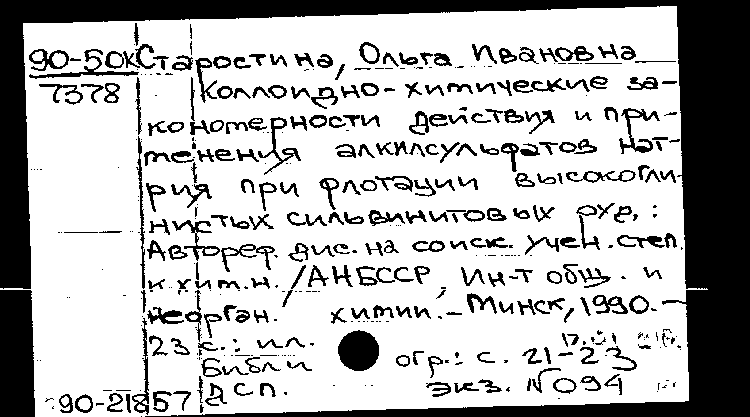 90-50К Старостина, Ольга Ивановна
7378 Коллоидно-химические за-
кономерности действия и при-
менения алкилсульфатов нат-
рия при флотации высокогли-
нистых сильвинитовых руд, :
Автореф. дис. на соиск. учен. степ.
к хим.н. / АН БССР, Ин-т общ. и
неорган. химии. - Минск, 1990. -
23 с.: ил.
Библиогр.: с. 21-23
90-21857 ДСП. экз. N 094